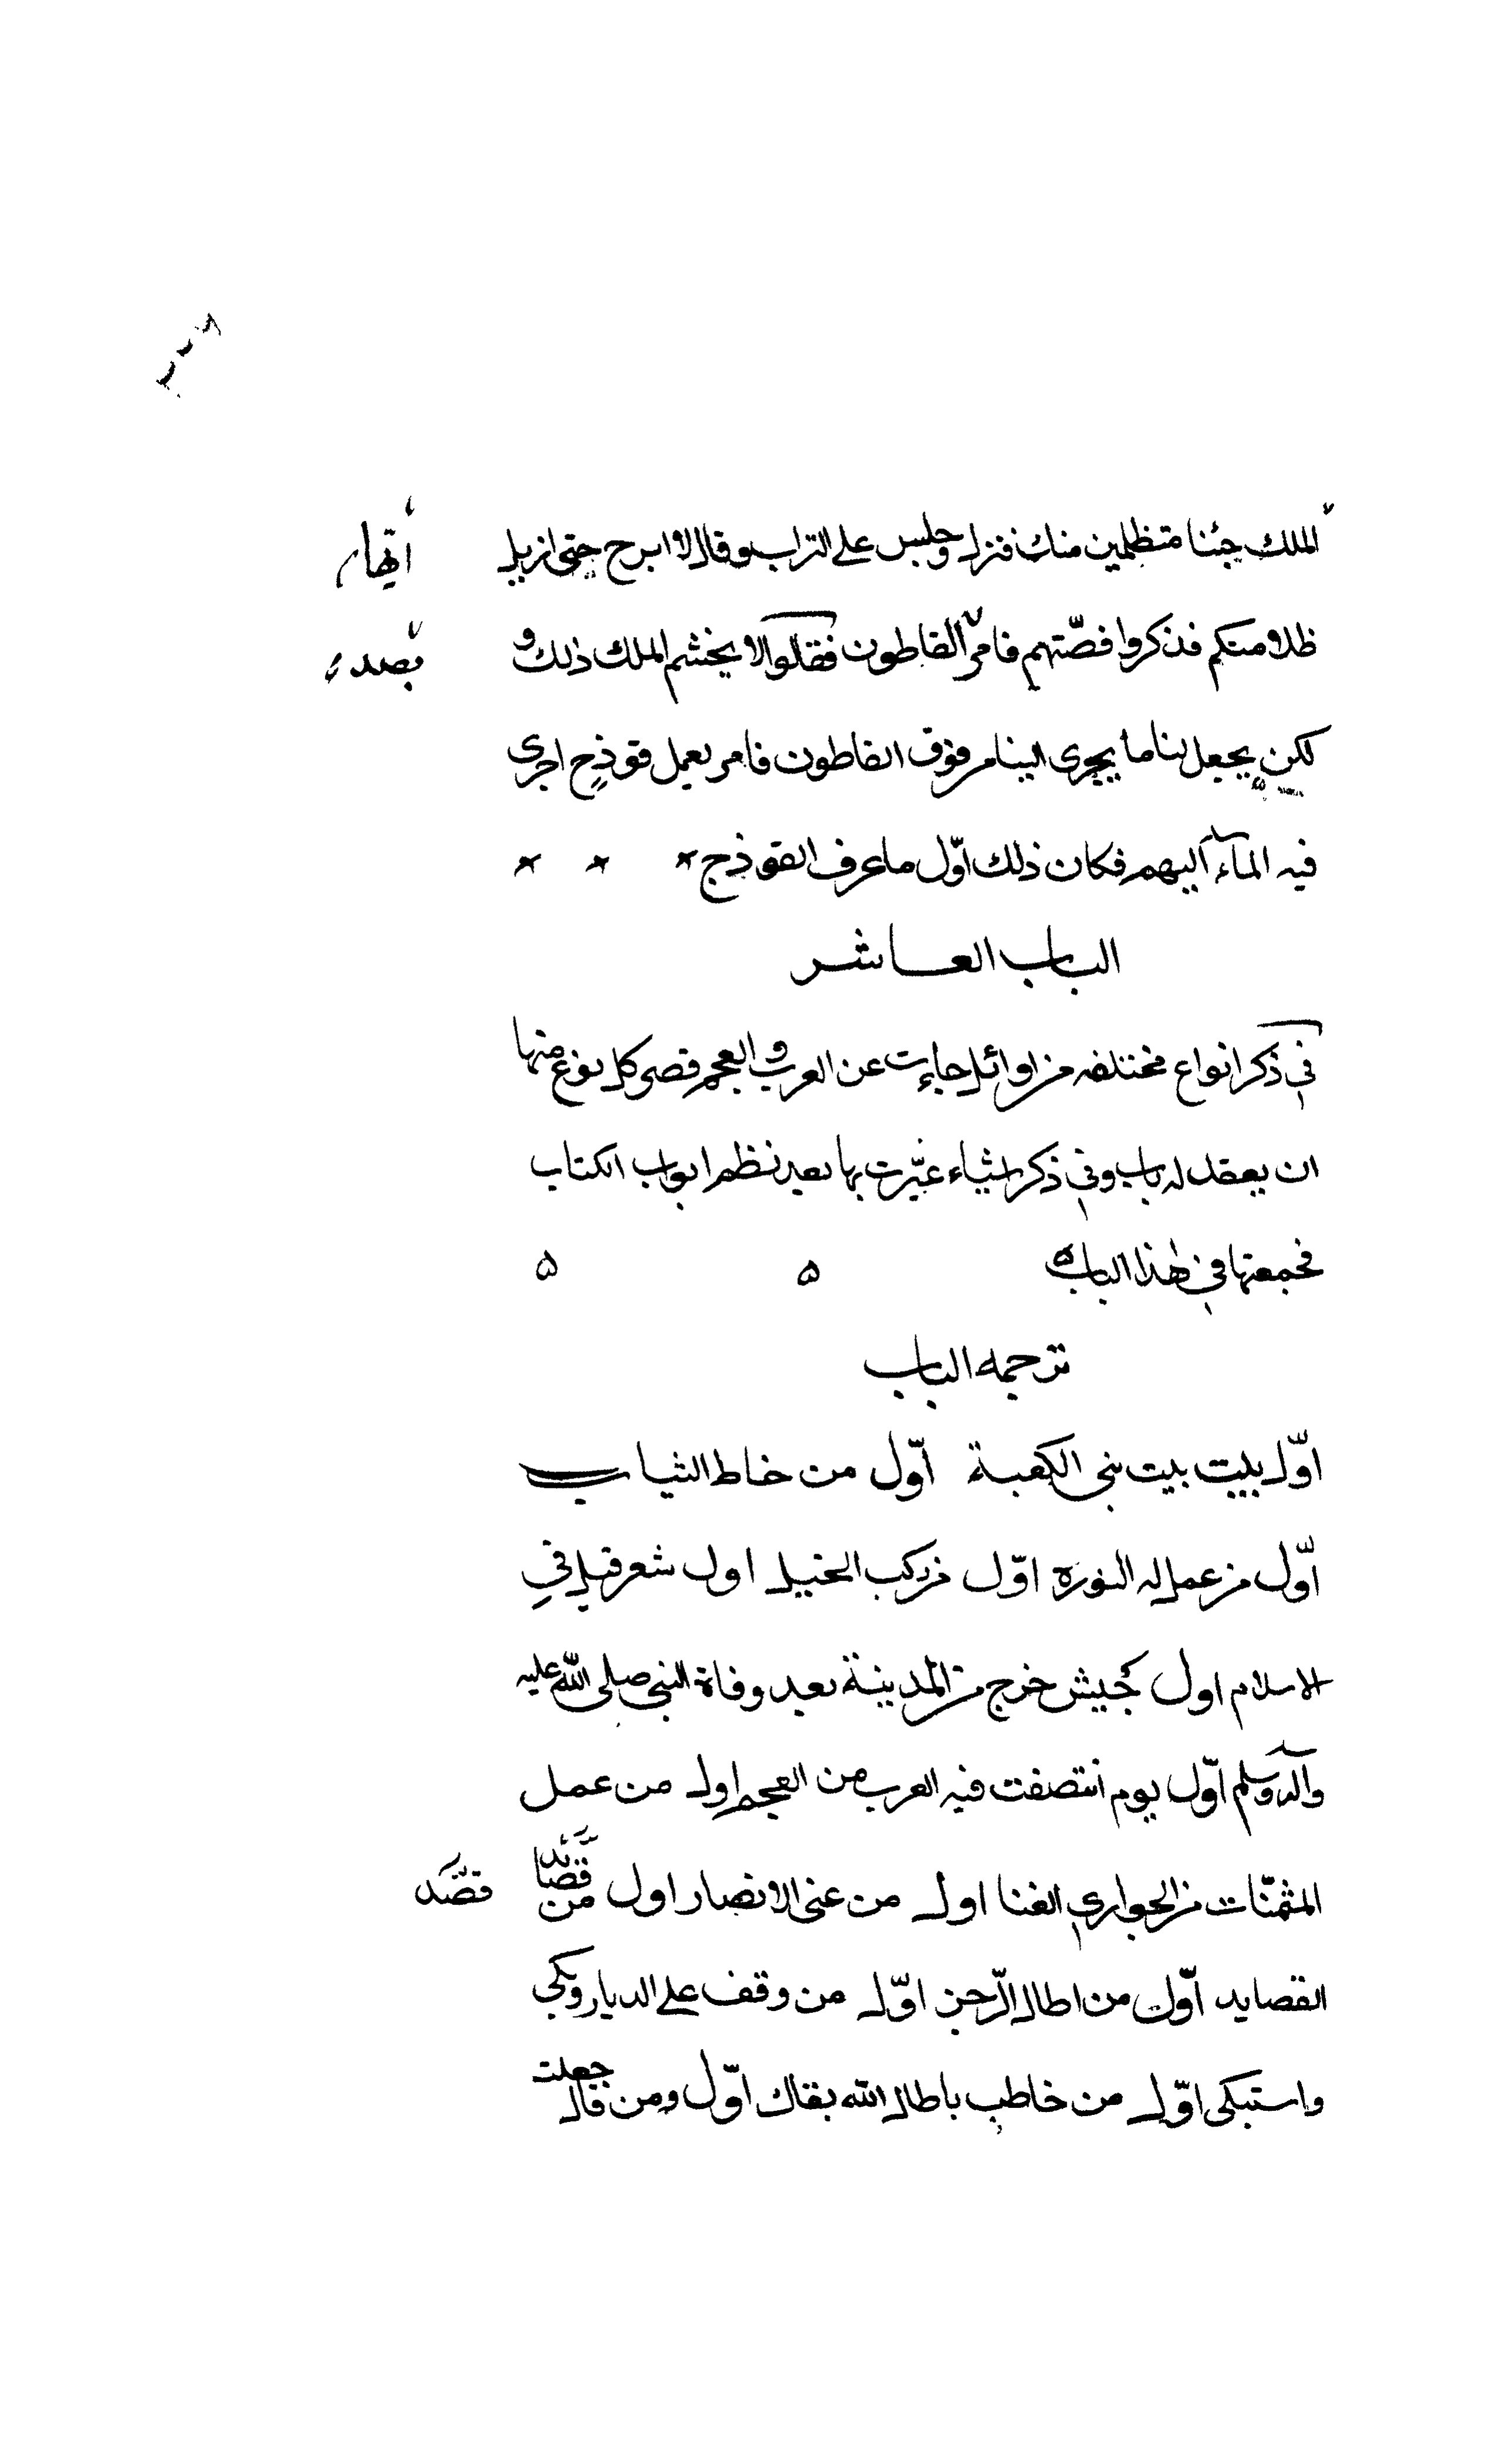 الملك جئنا متظلمين منك فنزل وجلس على التراب وقال لا ابرح حتى ازيل
ظلامتكم فذكروا قصّتهم فامر القاطون فقالوا لا يحشم الملك ذلك و
بصده
لكن يجعل لنا ما يجرى الينا من فوق القاطون فامر بعمل قوذح اجرى
فيه المآء اليهم فكان ذلك اوّل ما عرف القوذج
الباب العاشر
في ذكر انواع مختلفه من اوائل جاءت عن العرب والعجم قصر كل نوع منها
ان يعقد له باب وفي ذكر اشياء غيّرت بها بعد نظم ابواب الكتاب
فجمعتها في هذا الباب ه ه ه
ترجمه الباب
اوّل بيت بيت بنى الكعبة اوّل من خاط الثياب
اوّل من عمل له النوره اوّل من ركب الخيل اول شعر قيل في
الاسلام اول جيش خرج من المدينة بعد وفاة النبى صلى الله عليه
وآله وسلم اوّل يوم انتصفت فيه العرب من العجم اول من عمل
المثمنات من الجوارى الغنا اول من غنى الانصار اول من قصايد
قصّد
القصايد اوّل من اطال الرّجز اوّل من وقف على الديار وبكى
واستبكى اوّل من خاطب باطال الله بقاك اوّل ومن قال جعلت